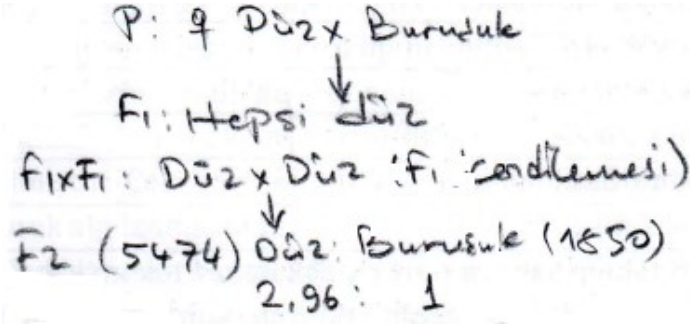 P: ♀ Düz x Buruşuk
↓
F1: Hepsi düz
F1xF1: Düz x Düz (F1 kendilemesi)
↓
F2 (5474) Düz: Buruşuk (1850)
2,96 : 1